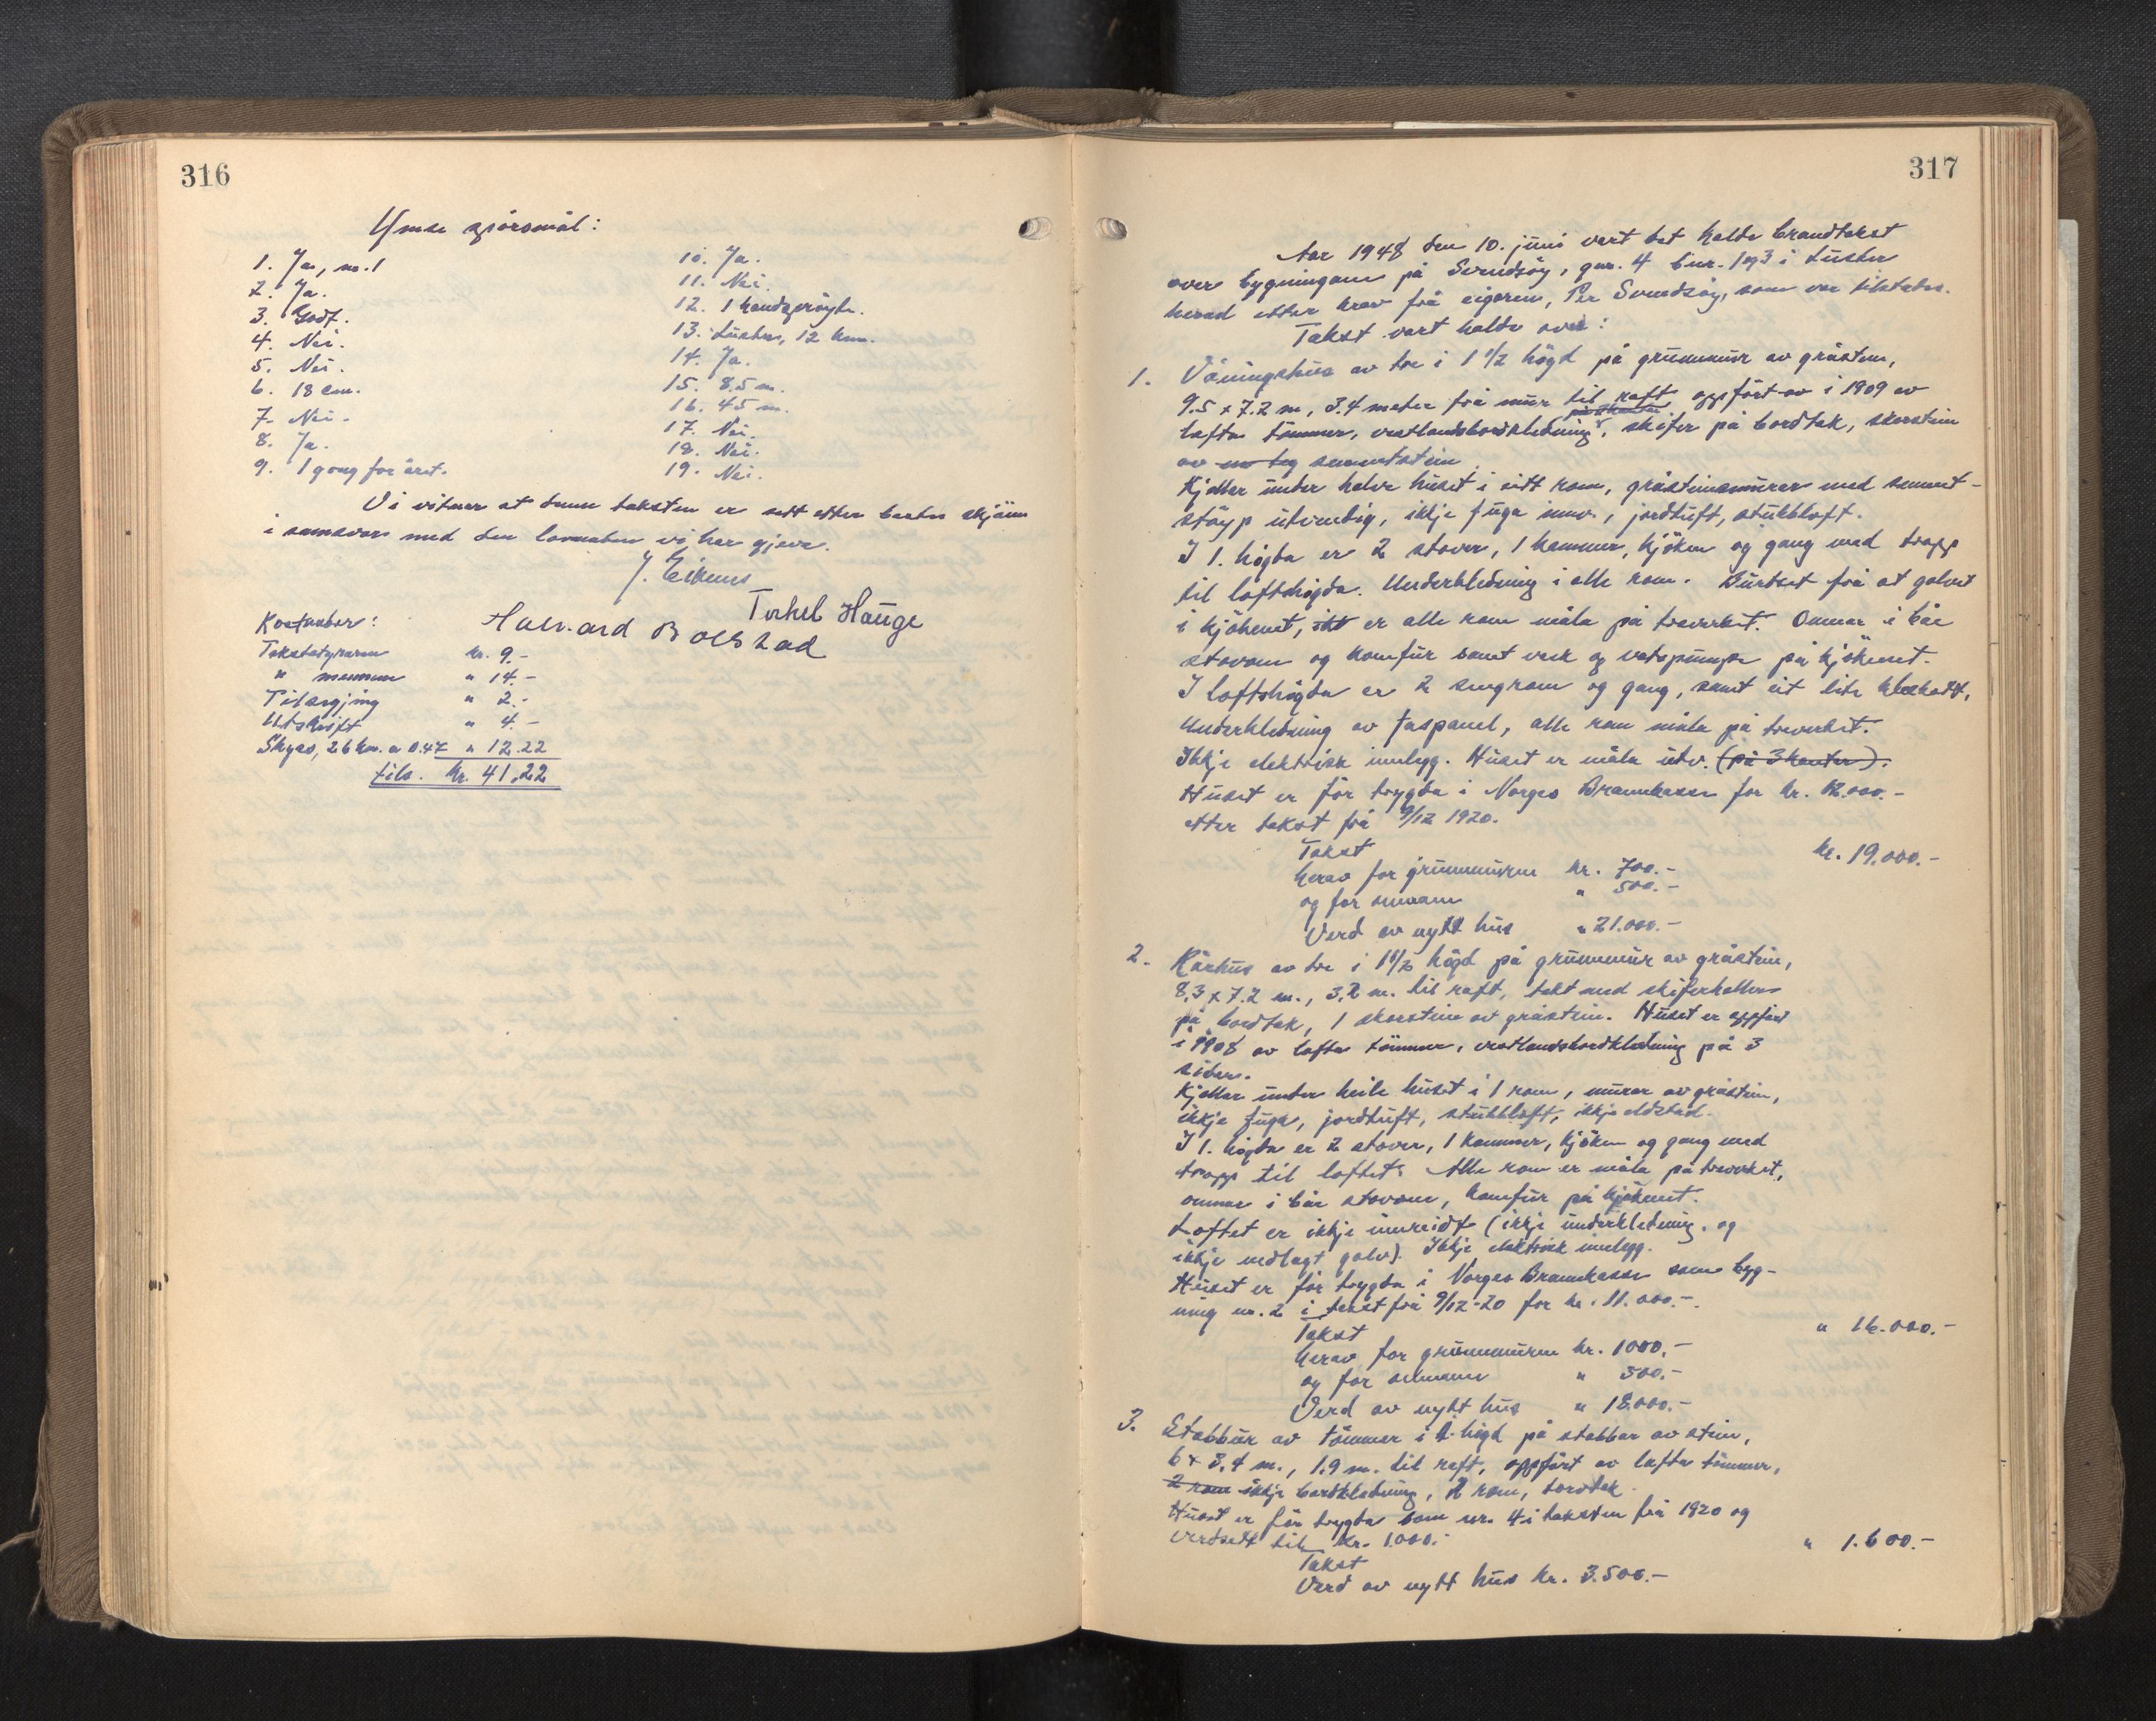 316
Ymse spörsmål:
1. Ja, nr. 1
2. Ja.
3. Godt.
4. Nei.
5. Nei.
6. 18 cm.
7. Nei.
8. Ja.
9. 1 gong for året.
10. Ja.
11. Nei.
12. 1 handspröyte.
13. Luster, 12 km.
14. Ja.
15. 8.5 m.
16. 45 m.
17. Nei.
18. Nei.
19. Nei.
Vi vitnar at denne taksten er sett etter beste skjönn
i samsvar med den lovnaden vi har gjeve.
J. Eikenes
Torkel Hauge
Halvard Bolstad
Kostnader:
Takststyraren kr. 9.-
" mennene " 14.-
Tilsegjing " 2.-
Utskrift " 4.-
Skyss, 26 km. a 0.47 " 12.22
tils. kr. 41.22
317
Aar 1948 den 10. juni vart det halde brandtakst
over bygningane på Svendsöy, gnr. 4 bnr. 1 og 3 i Luster
herad etter krav frå eigaren, Per Svendsöy, som var tilstades.
Takst vart halde over:
1. Våningshus av tre i 1 1/2 högd på grunnmur av gråstein,
9.5 x 7.2 m, 3.4 meter frå mur til raft oppfört av i 1909 av
lafta tömmer, vestlandsbordkledning, skifer på bordtak, skorstein
av sementstein
Kjellar under halve huset i eitt rom, gråsteinsmurar med sement-
stöyp utvendig, ikkje fuga innv., jordtuft, stubbloft.
I 1. högda er 2 stover, 1 kammer, kjöken og gang med trapp
til loftshögda. Underkledning i alle rom. Burtset frå at golvet
i kjökenet, er alle rom måla på treverket. Omnar i båe
stovone og komfur samt vask og vatspumpe på kjökenet.
I loftshögda er 2 sengrom og gang, samt eit lite kleskott,
Underkledning av faspanel, alle rom måla på treverket.
Ikkje elektrisk innlegg. Huset er måla utv. (på 3 kanter).
Huset er för trygda i Norges Brannkasse for kr. 12.000.-
etter takst frå 9/12 1920.
Takst kr. 19.000.-
herav for grunnmuren kr. 700.-
og for omnane " 500.-
Verd av nytt hus " 21.000.-
2. Kårhus av tre i 1 1/2 högd på grunnmur av gråstein,
8.3 x 7.2 m., 3.2 m. til raft, tekt med skiferheller
på bordtak, 1 skorstein av gråstein. Huset er oppfört
i 1908 av lafta tömmer, vestlandsbordkledning på 3
sider.
Kjellar under heile huset i 1 rom, murar av gråstein,
ikkje fuga, jordtuft, stubbloft, ikkje eldstad.
I 1. högda er 2 stover, 1 kammer, kjöken og gang med
trapp til loftet. Alle rom er måla på treverket,
omnar i båe stovone, komfur på kjökenet.
Loftet er ikkje innreidt (ikkje underkledning, og
ikkje nedlagt golv). Ikkje elektrisk innlegg.
Huset er för trygda i Norges Brannkasse som byg-
ning nr. 2 i takst frå 9/12-20 for kr. 11.000.-
Takst " 16.000.-
herav for grunnmuren kr. 1000.-
og for omnane " 300.-
Verd av nytt hus " 18.000.-
3. Stabbur av tömmer i 1 högd på stabbar av stein,
6 x 3.4 m., 1.9 m. til raft, oppfört av lafta tömmer,
2 rom ikkje bordkledning, 2 rom, torvtak.
Huset er för trygda som nr. 4 i taksten frå 1920 og
verdsett til kr. 1.000.-
Takst " 1.600.-
Verd av nytt hus kr. 3.500.-